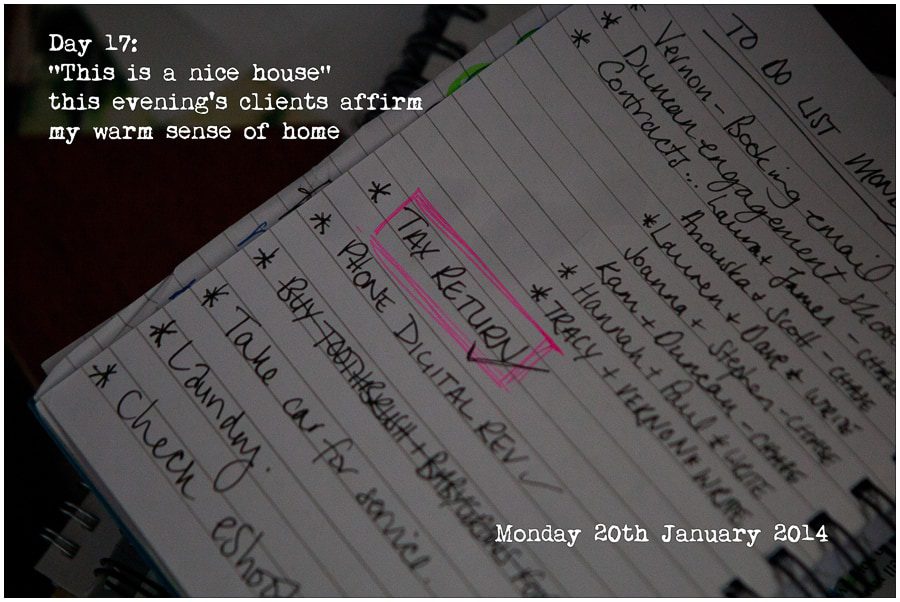 Day 17:
"This is a nice house"
this evening's clients affirm
my warm sense of home
TO DO LIST
* Vernon - Booking email
* Duncan engagement shoot
Contracts... Laura + James - CHASE
Anouska + Scott - CHASE
* Lauren + Dave * WRITE
Joanna + Stephen - CHASE
Kam + Duncan - CHASE
* Hannah + Paul * WRITE
* TRACY + VERNON * WRITE
* TAX RETURN ✓
* PHONE DIGITAL REV ✓
* BUY TOOTHBRUSH +
* Take car for service.
* Laundry.
* Check eshoot
Monday 20th January 2014